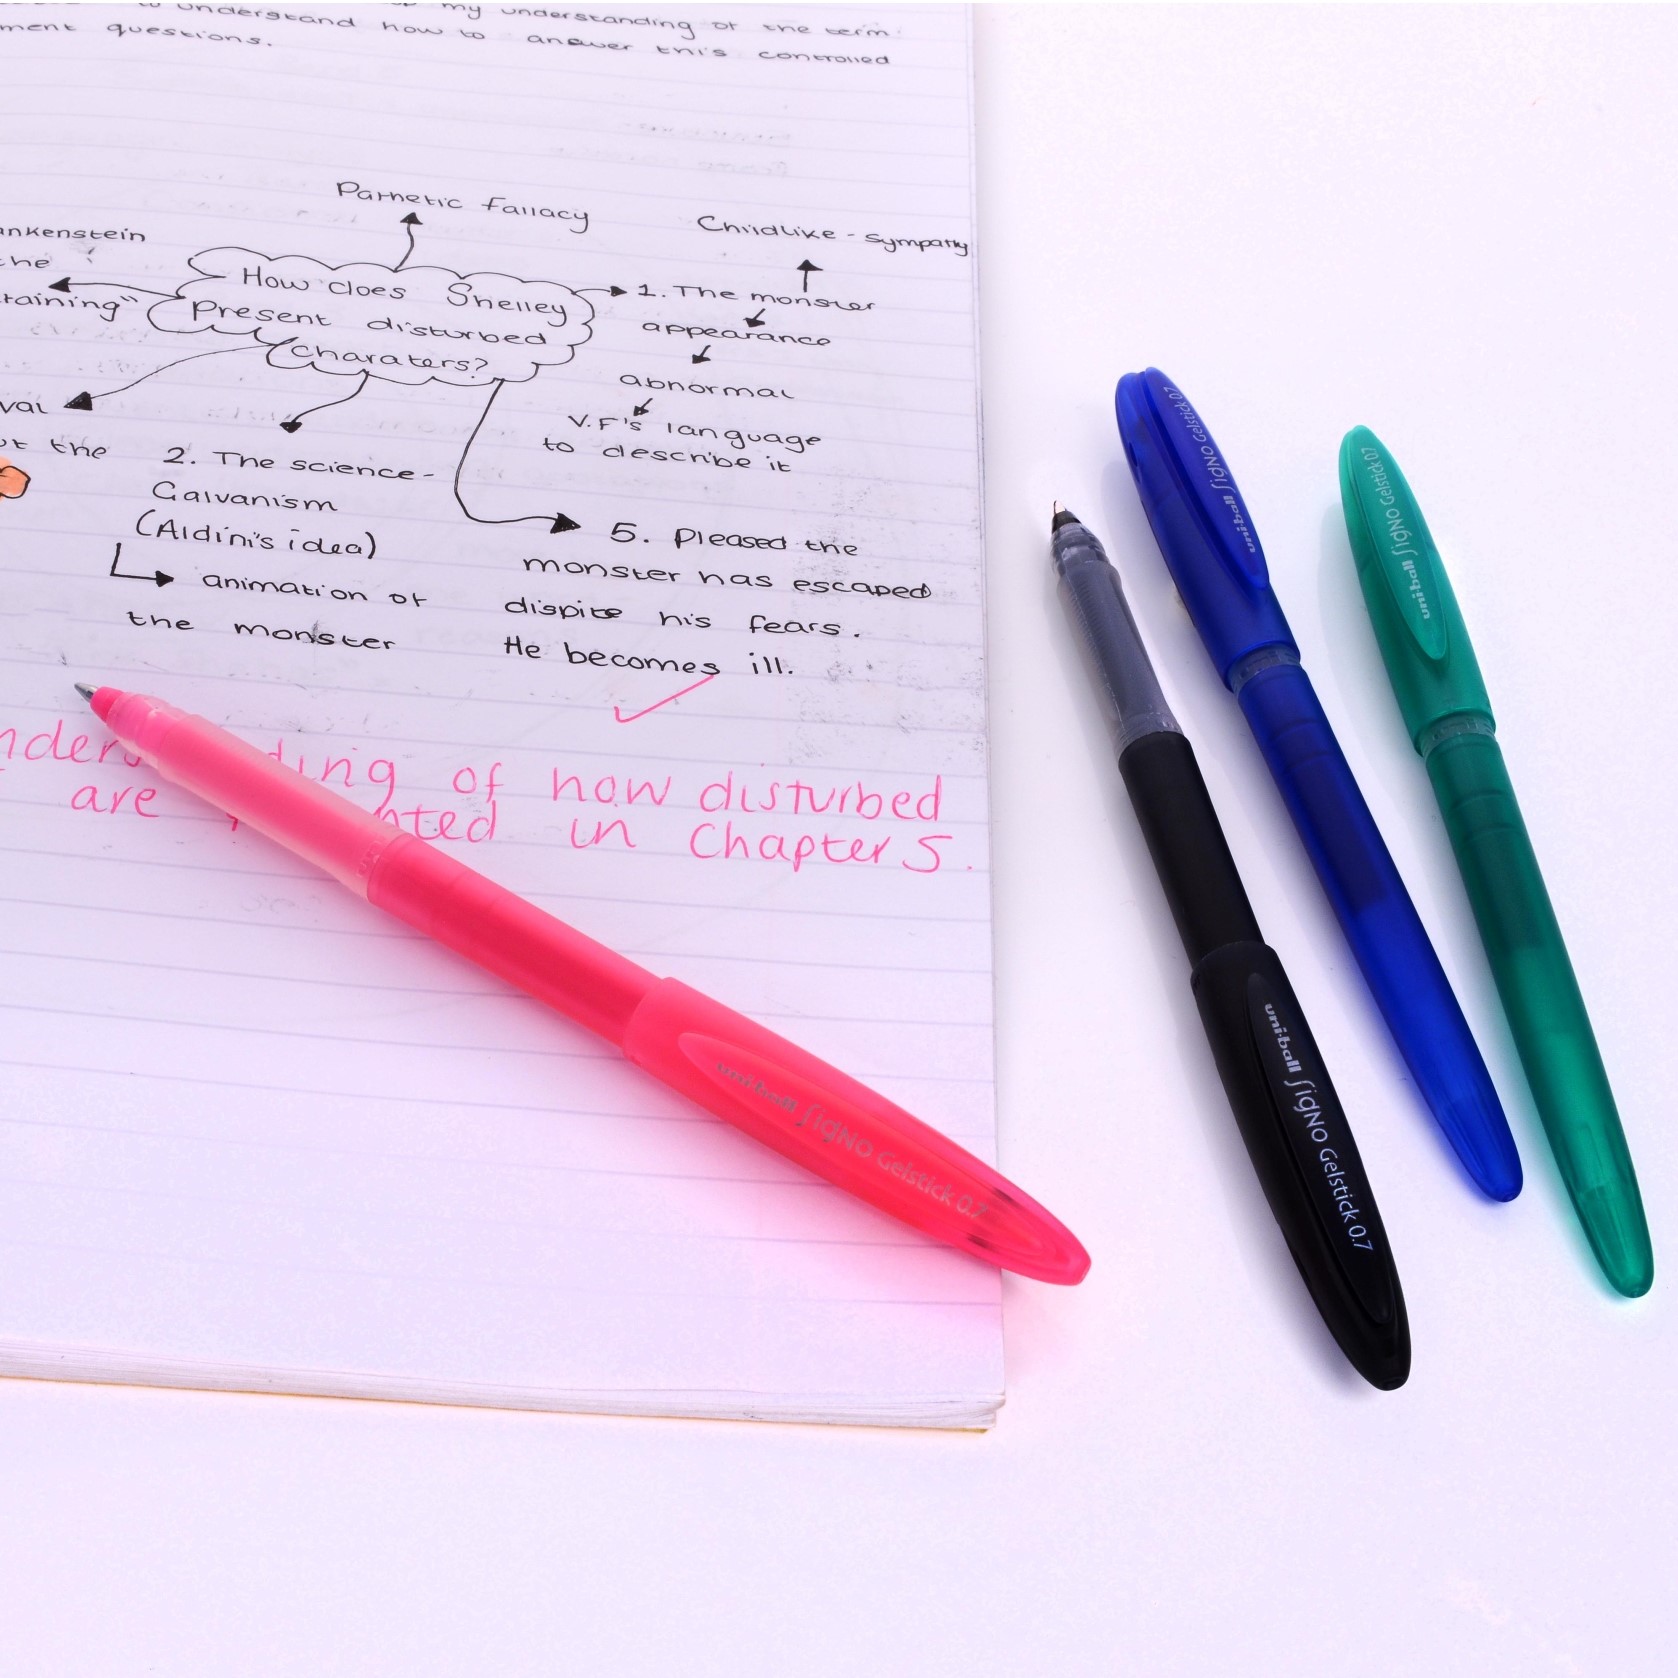 to understand my understanding of the term
ment questions. how to answer this controlled
Pathetic Fallacy
Childlike - sympathy
ankenstein
the
taining"
How does Shelley
present disturbed
charaters?
1. The monster
appearance
abnormal
V.F's language
to describe it
val
ut the
2. The science -
Galvanism
(Aldini's idea)
animation of
the monster
5. Pleased the
monster has escaped
dispite his fears.
He becomes ill.
nders ding of how disturbed
are nted in Chapter 5.
uni-ball SigNO Gelstick 0.7
uni-ball SigNO Gelstick 0.7
uni-ball SigNO Gelstick 0.7
uni-ball SigNO Gelstick 0.7